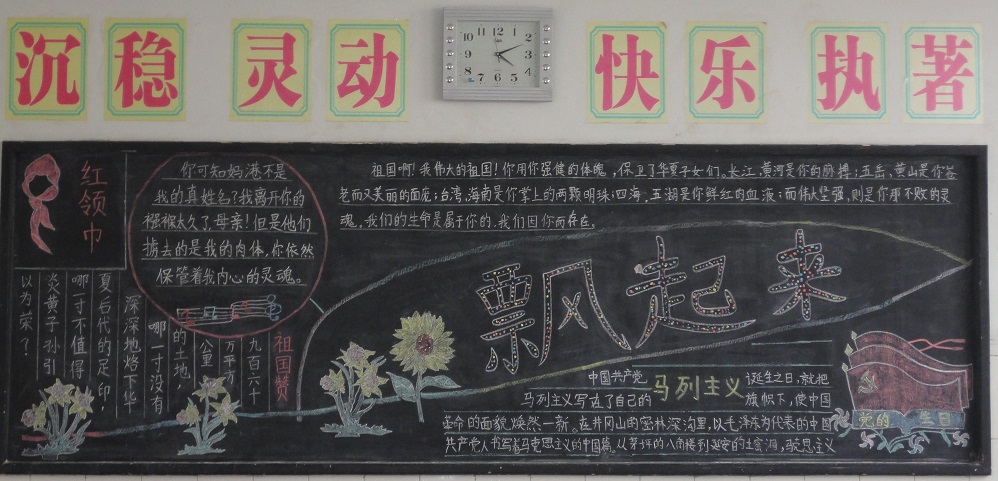 沉稳 灵动 快乐 执著
12
1
2
3
4
5
6
7
8
9
10
11
红领巾
你可知妈港不是
我的真姓名?我离开你的
襁褓太久了,母亲!但是他们
掳去的是我的肉体,你依然
保管着我内心的灵魂。
祖国啊!我伟大的祖国!你用你强健的体魄,保卫了华夏子女们。长江、黄河是你的脉搏;五岳、黄山是你苍
老而又美丽的面庞;台湾、海南是你掌上的两颗明珠;四海、五湖是你鲜红的血液;而伟大坚强,则是你那不败的灵
魂。我们的生命是属于你的,我们因你而存在。
飘起来
祖国赞
九百六十
万平方
公里
的土地,
哪一寸没有
深深地烙下华
夏后代的足印,
哪一寸不值得
炎黄子孙引
以为荣?
中国共产党马列主义诞生之日,就把
马列主义写在了自己的旗帜下,使中国
革命的面貌焕然一新。在井冈山的密林深沟里,以毛泽东为代表的中国
共产党人书写着马克思主义的中国篇。从茅坪的八角楼到延安的土窑洞,
党的生日